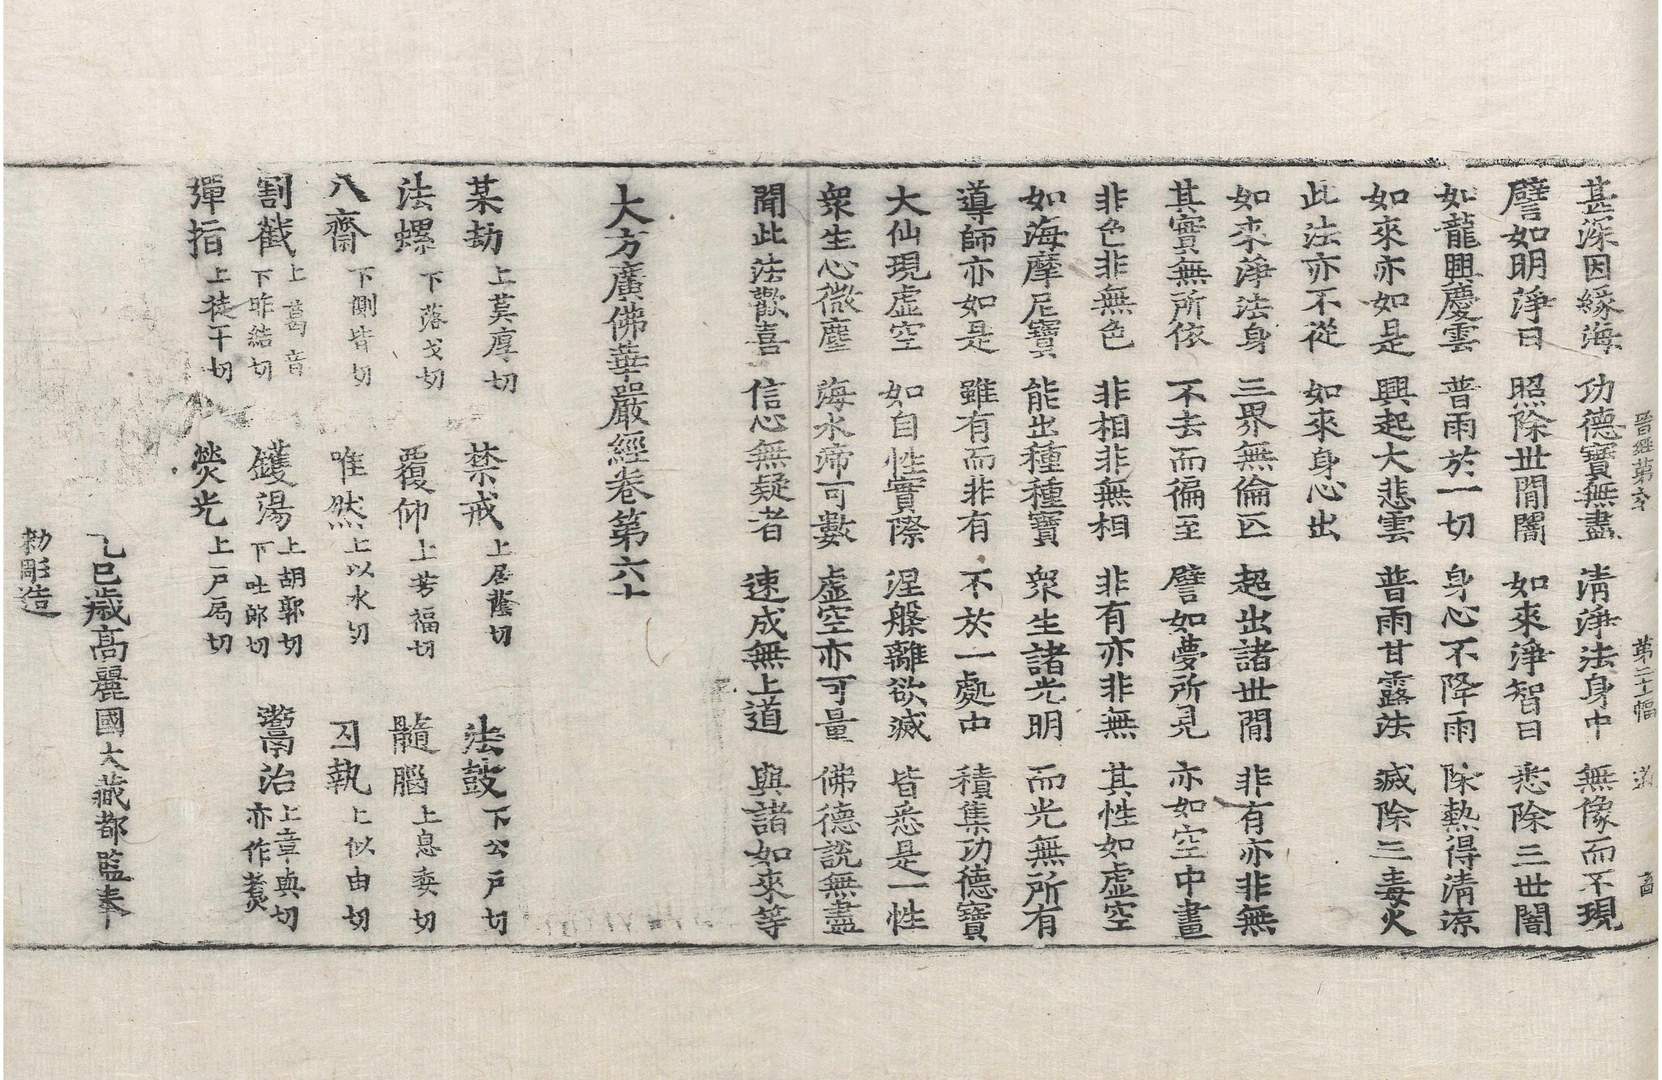 晉經第六十 第二十幅 崗
甚深因緣海 功德寶無盡 清淨法身中 無像而不現
譬如明淨日 照除世間闇 如來淨智日 悉除三世闇
如龍興慶雲 普雨於一切 身心不降雨 除熱得清涼
如來亦如是 興起大悲雲 普雨甘露法 滅除三毒火
此法亦不從 如來身心出
如來淨法身 三界無倫匹 超出諸世間 非有亦非無
其實無所依 不去而徧至 譬如夢所見 亦如空中畫
非色非無色 非相非無相 非有亦非無 其性如虛空
如海摩尼寶 能出種種寶 衆生諸光明 而光無所有
導師亦如是 雖有而非有 不於一處中 積集功德寶
大仙現虛空 如自性實際 涅槃離欲滅 皆悉是一性
衆生心微塵 海水渧可數 虛空亦可量 佛德說無盡
聞此法歡喜 信心無疑者 速成無上道 與諸如來等
大方廣佛華嚴經卷第六十
某劫 上莫厚切 禁戒 上居蔭切 法鼓 下公戶切
法螺 下落戈切 覆仰 上芳福切 髓腦 上息委切
八齋 下側皆切 唯然 上以水切 习執 上似由切
割截 上葛音 下昨結切 鑊湯 上胡郭切 下吐郎切 鬻治 上章與切 亦作煑
彈指 上徒干切 熒光 上戶扃切
乙巳歲高麗國大藏都監奉
勅彫造